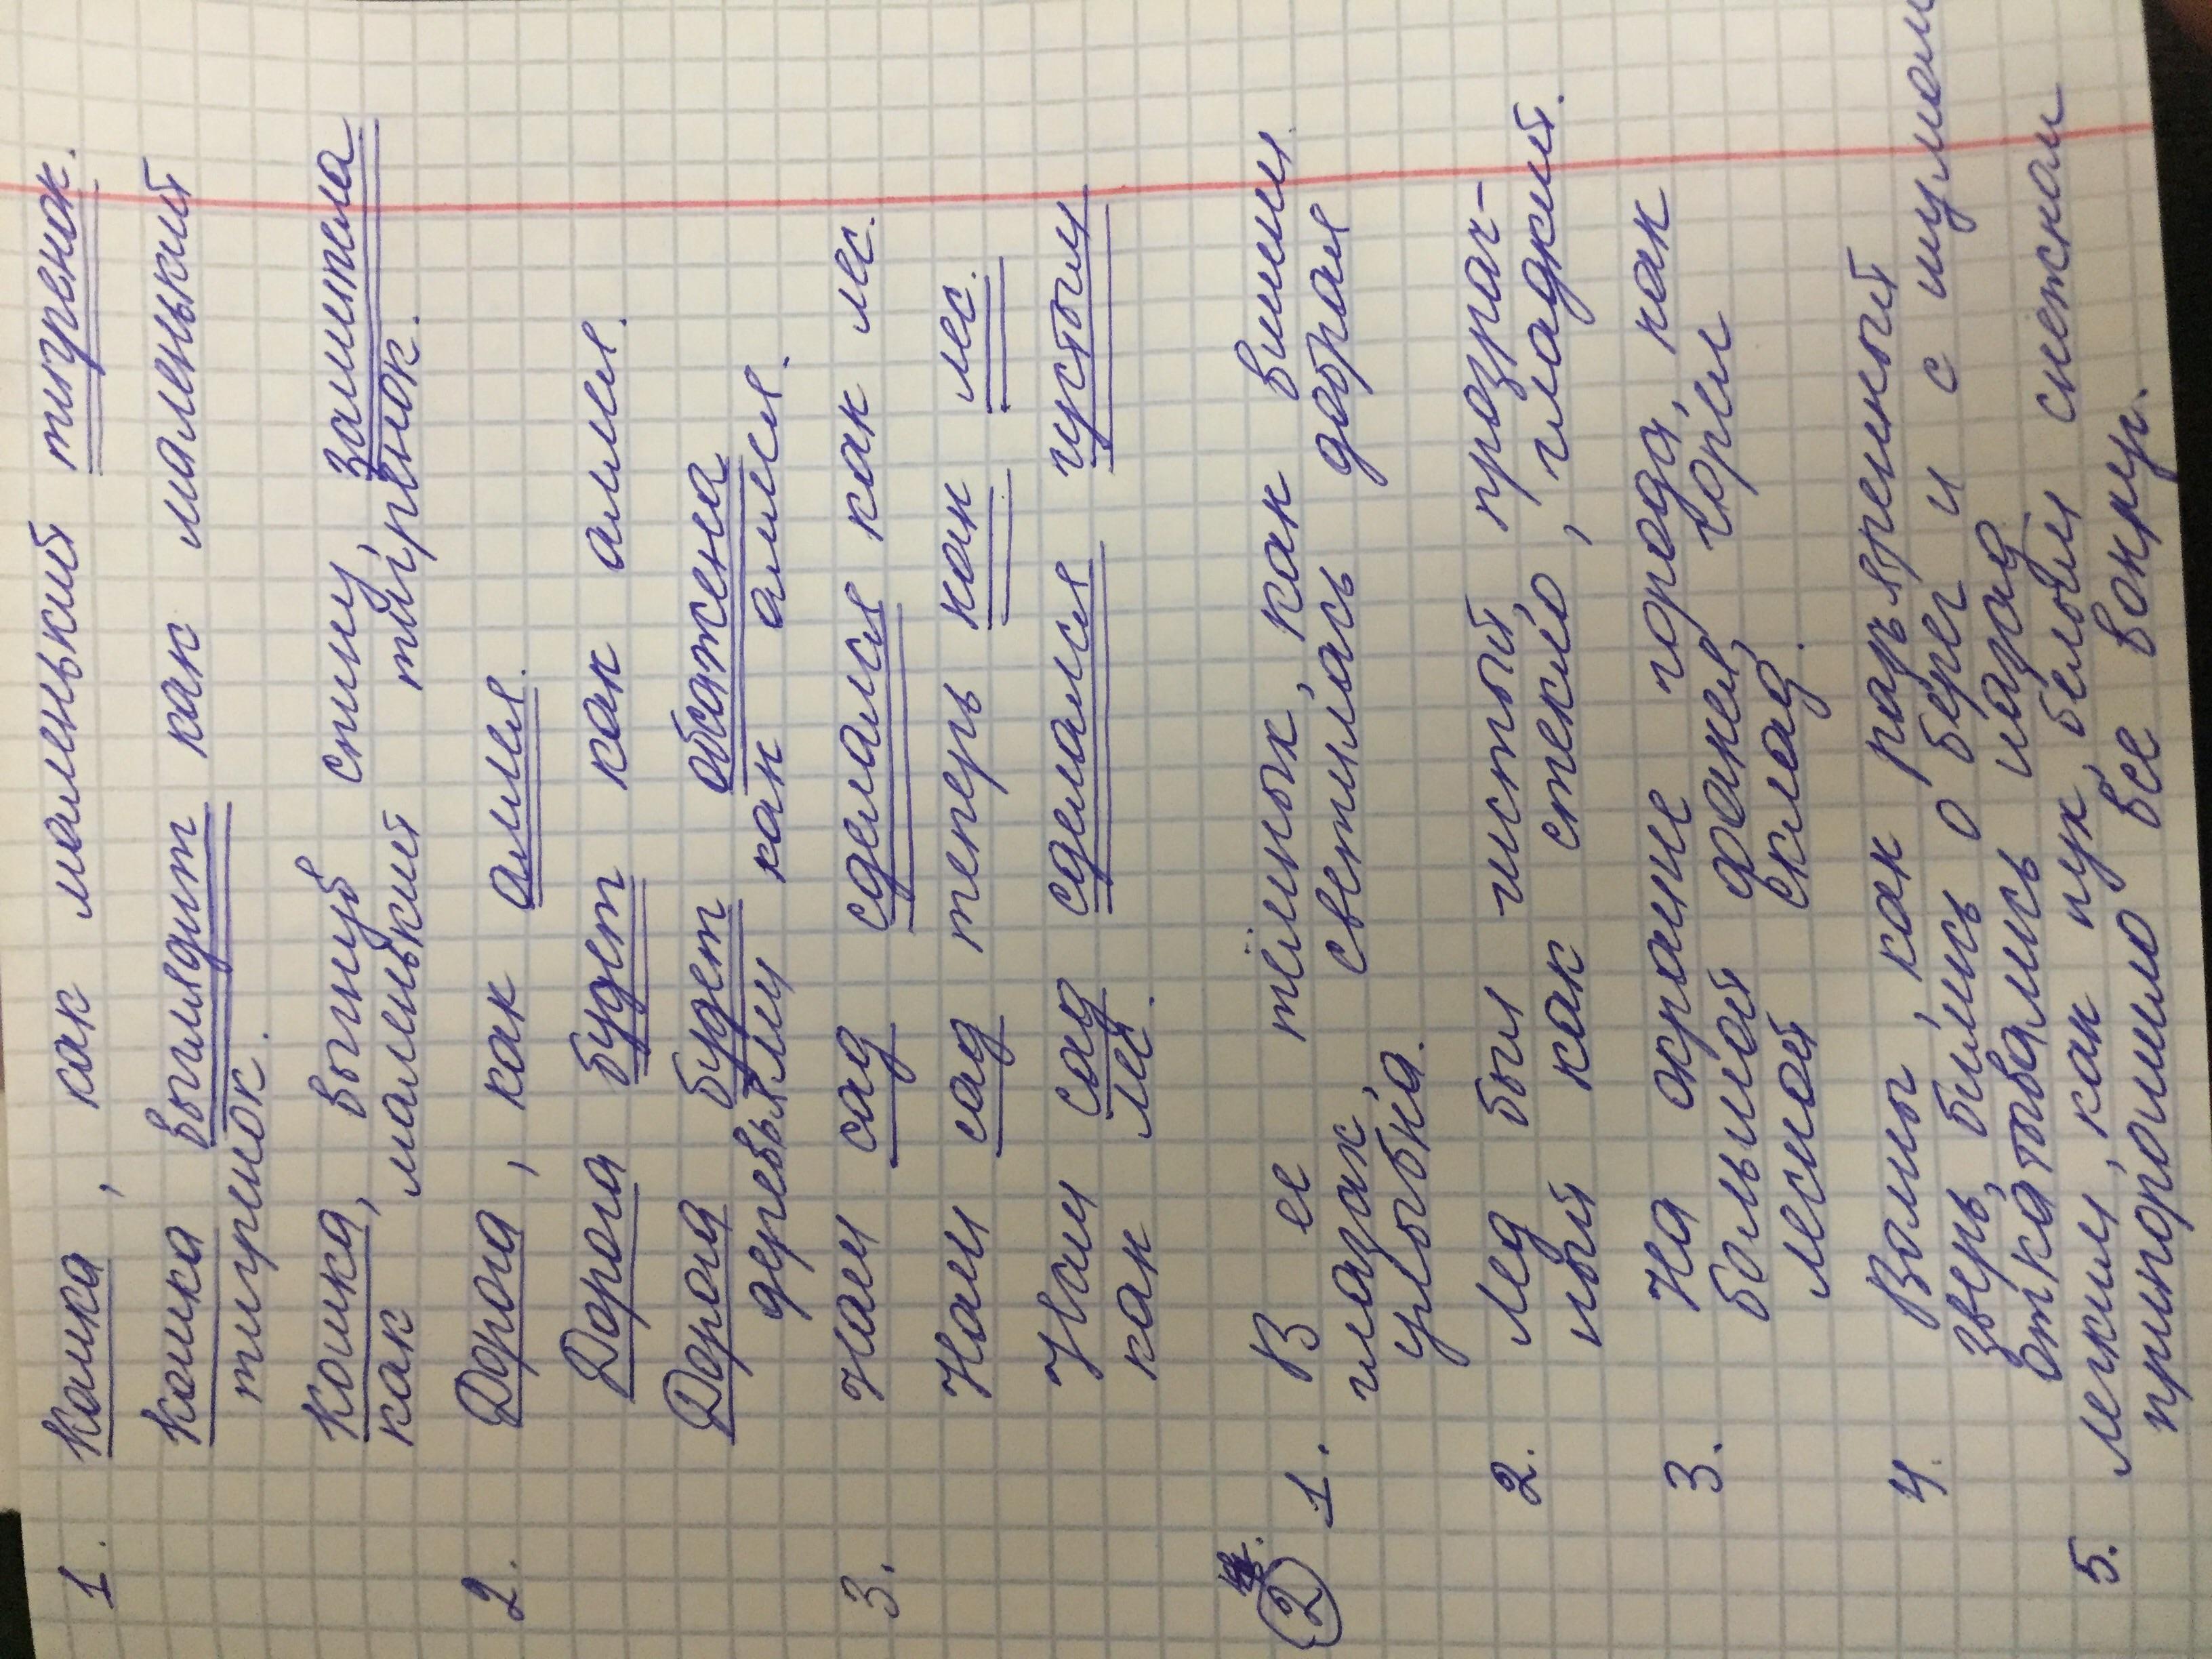 1. Кошка, как маленький тигренок.
Кошка выглядит как маленький
тигренок.
Кошка, выгнув спину, зашипела
как маленький тигренок.
2. Дорога, как аллея.
Дорога будет как аллея.
Дорога будет обсажена
деревьями как аллея.
3. Наш сад сделался как лес.
Наш сад теперь как лес.
Наш сад сделался густым
как лес.
2 1. В ее тёмных, как вишни
глазах, светилась добрая
улыбка.
2. Лед был чистый, прозрач-
ный как стекло, гладкий.
3. На окраине города, как
большой факел, горел
лесной склад.
4. Волны, как разъяренный
зверь, бились о берег и с шумом
откатывались назад
5. легким, как пух, белым снежком
припорошило все вокруг.